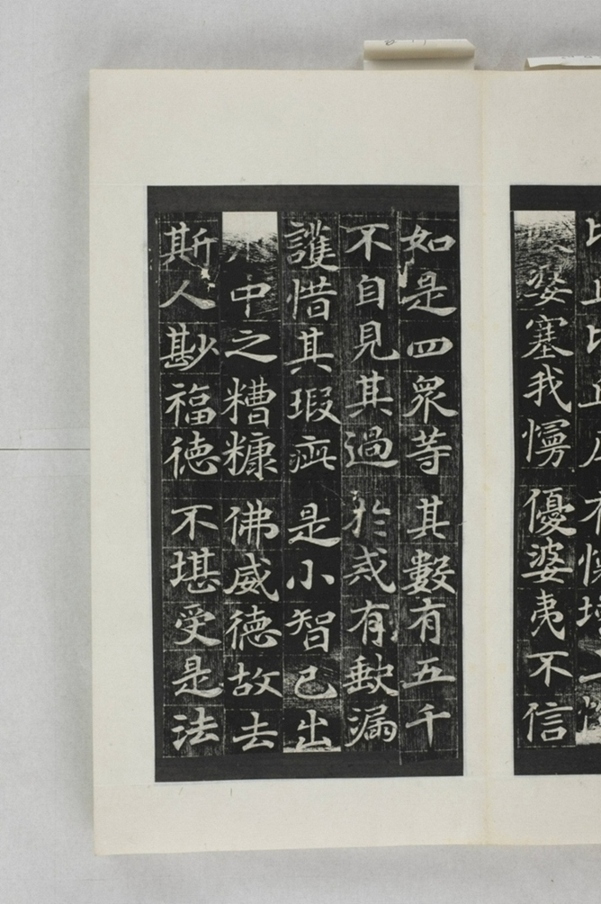 婆塞我慢優婆夷不信
如是四衆等其數有五千
不自見其過於戒有缺漏
護惜其瑕疵是小智已出
中之糟糠佛威徳故去
斯人尠福徳不堪受是法